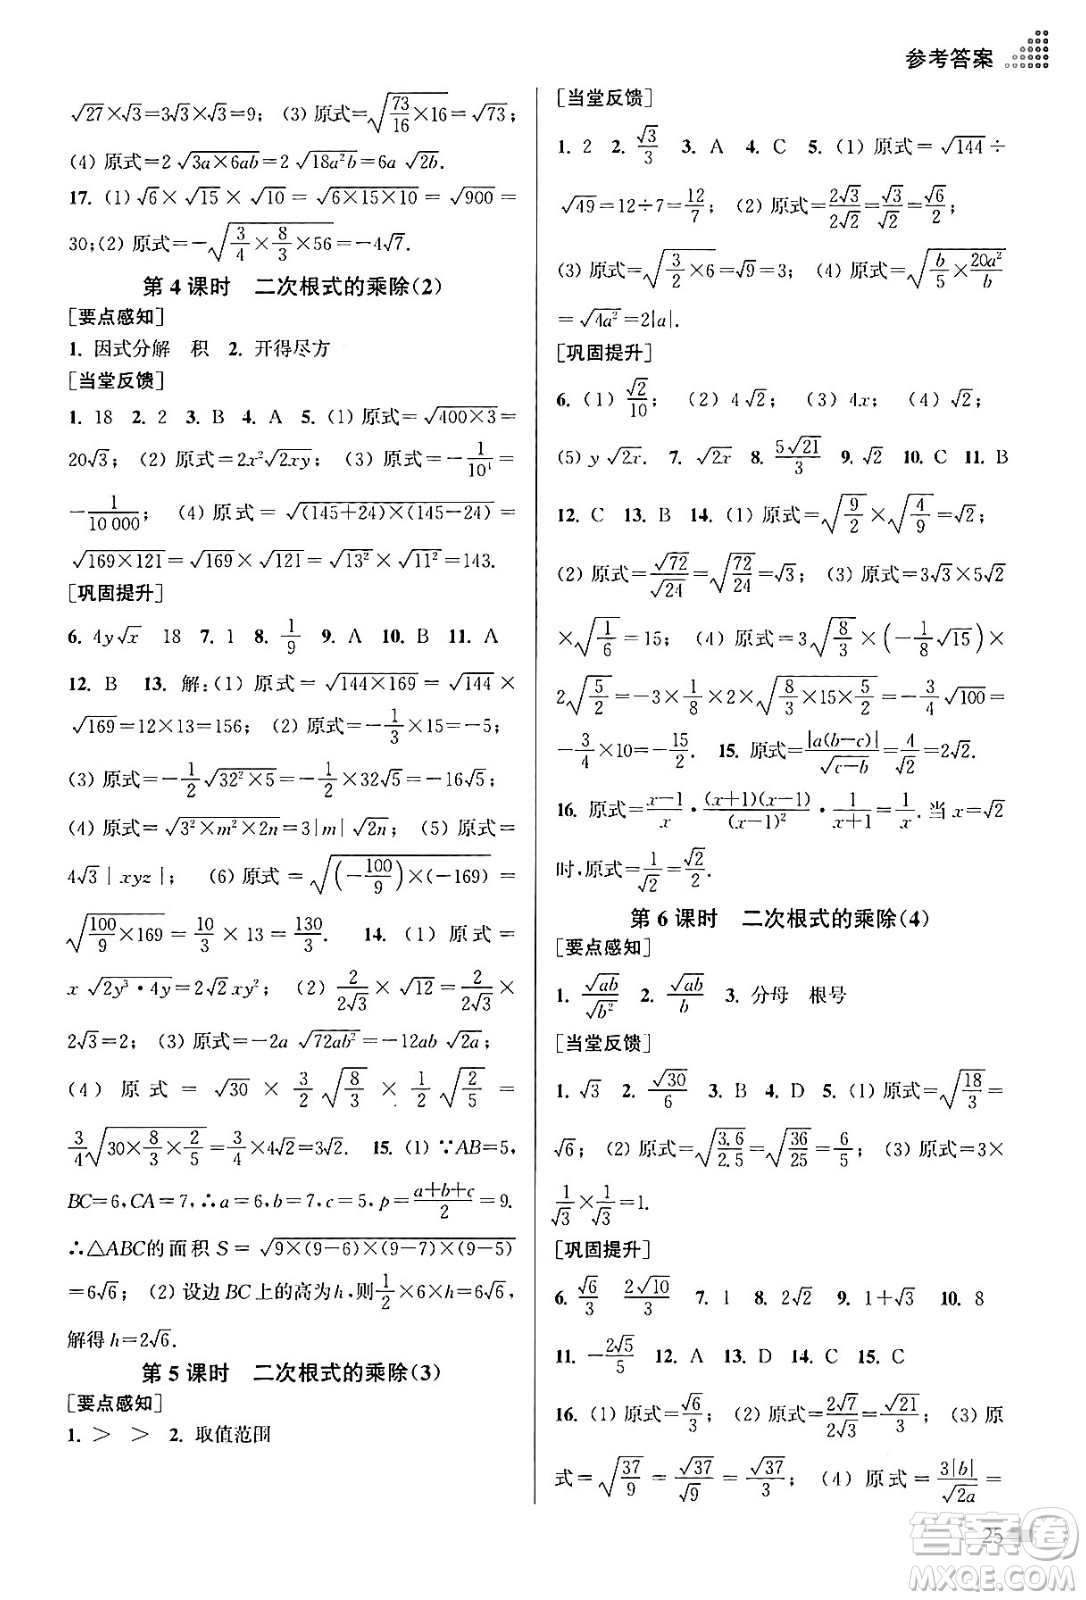 参考答案
√27×√3=3√3×√3=9; (3) 原式=√(73/16×16)=√73;
(4) 原式=2√(3a×6ab)=2√(18a²b)=6a√(2b).
17. (1) √6×√15×√10=√(6×15×10)=√900=
30;(2) 原式=-√(3/4×8/3×56)=-4√7.
第 4 课时 二次根式的乘除(2)
[要点感知]
1. 因式分解 积 2. 开得尽方
[当堂反馈]
1. 18 2. 2 3. B 4. A 5. (1) 原式=√(400×3)=
20√3; (2) 原式=2x²√(2xy); (3) 原式=-1/10;
-1/10 000; (4) 原式=√((145+24)×(145-24))=
√(169×121)=√169×√121=√13²×√11²=143.
[巩固提升]
6. 4y√x 18 7. 1 8. 1/9 9. A 10. B 11. A
12. B 13. 解:(1) 原式=√(144×169)=√144×
√169=12×13=156; (2) 原式=-1/3×15=-5;
(3) 原式=-1/2√(32²×5)=-1/2×32√5=-16√5;
(4) 原式=√(3²×m²×2n)=3|m|√(2n); (5) 原式=
4√3|xyz|; (6) 原式=√((-100/9)×(-169))=
√(100/9×169)=10/3×13=130/3. 14. (1) 原式=
x√(2y³·4y)=2√2xy²; (2) 2/(2√3)×√12=2/(2√3)×
2√3=2; (3) 原式=-2a√(72ab²)=-12ab√(2a);
(4) 原式=√30×3/2√(8/3)×1/2√(2/5)=
3/4√(30×8/3×2/5)=3/4×4√2=3√2. 15. (1) ∵AB=5,
BC=6,CA=7,∴a=6,b=7,c=5,p=(a+b+c)/2=9.
∴△ABC的面积S=√(9×(9-6)×(9-7)×(9-5))
=6√6; (2) 设边BC上的高为h,则1/2×6h=6√6,
解得h=2√6.
第 5 课时 二次根式的乘除(3)
[要点感知]
1. > > 2. 取值范围
[当堂反馈]
1. 2 2. √3/3 3. A 4. C 5. (1) 原式=√144÷
√49=12÷7=12/7; (2) 原式=2√3/2√2=√3/√2=√6/2;
(3) 原式=√(3/2×6)=√9=3; (4) 原式=√(b/5×20a²/b)
=√(4a²)=2|a|.
[巩固提升]
6. (1) √2/10; (2) 4√2; (3) 4x; (4) √2;
(5) y√(2x). 7. √(2x) 8. 5√21/3 9. √2 10. C 11. B
12. C 13. B 14. (1) 原式=√(9/2)×√(4/9)=√2;
(2) 原式=√72/√24=√(72/24)=√3; (3) 原式=3√3×5√10
×√(1/6)=15; (4) 原式=3√(8/3)×(-1/8√15)×
2√(5/2)=-3×1/8×2×√(8/3×15×5/2)=-3/4√100=
-3/4×10=-15/2. 15. 原式=|a(b-c)|/√(c-b)=4/√2=2√2.
16. 原式=(x-1)/x·(x+1)(x-1)/(x-1)²·1/(x+1)=1/x. 当x=√2
时,原式=1/√2=√2/2.
第 6 课时 二次根式的乘除(4)
[要点感知]
1. √(ab)/√(b²) 2. √(ab)/b 3. 分母 根号
[当堂反馈]
1. √3 2. √30/6 3. B 4. D 5. (1) 原式=√(18/3)=
√6; (2) 原式=√(3.6/2.5)=√(36/25)=6/5; (3) 原式=3×
1/√3×1/√3=1.
[巩固提升]
6. √6/3 2√10/3 7. 1 8. 2√2 9. 1+√3 10. 8
11. -2√5/5 12. A 13. D 14. C 15. C
16. (1) 原式=√6/3; (2) 原式=2√7/2√3=√21/3; (3) 原
式=√(37/9)=√37/√9=√37/3; (4) 原式=3|b|/√(2a)=
25
答案卷
www.MQDAAN.COM